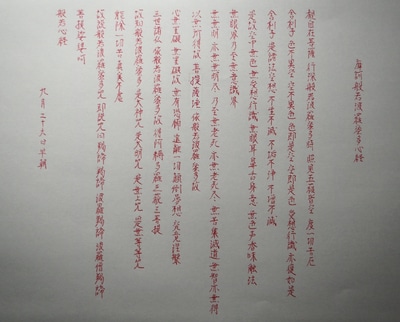 摩訶般若波羅蜜多心経
観自在菩薩 行深般若波羅蜜多時 照見五蘊皆空 度一切苦厄
舎利子 色不異空 空不異色 色即是空 空即是色 受想行識 亦復如是
舎利子 是諸法空想 不生不滅 不垢不浄 不増不減
是故空中 無色 無受想行識 無眼耳鼻舌身意 無色声香味触法
無眼界 乃至無意識界
無無明 亦無無明尽 乃至無老死 亦無老死尽 無苦集滅道 無智亦無得
以無所得故 菩提薩埵 依般若波羅蜜多故
心無罣礙 無罣礙故 無有恐怖 遠離一切顛倒夢想 究竟涅槃
三世諸仏 依般若波羅蜜多故 得阿耨多羅三藐三菩提
故知般若波羅蜜多 是大神咒 是大明咒 是無上咒 是無等等咒
能除一切苦 真実不虚
故説般若波羅蜜多咒 即説咒曰 羯諦 羯諦 波羅羯諦 波羅僧羯諦
菩提薩婆訶
般若心経
九月二十九日早朝